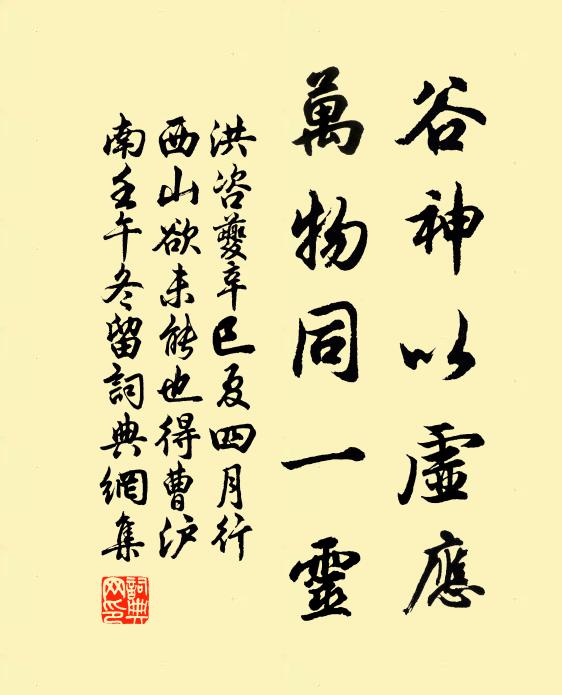 谷神以虛應
萬物同一靈
洪咨夔辛巳夏四月行
西山欲未能也得曹沪
南壬午冬留詞典網集
詞典网印